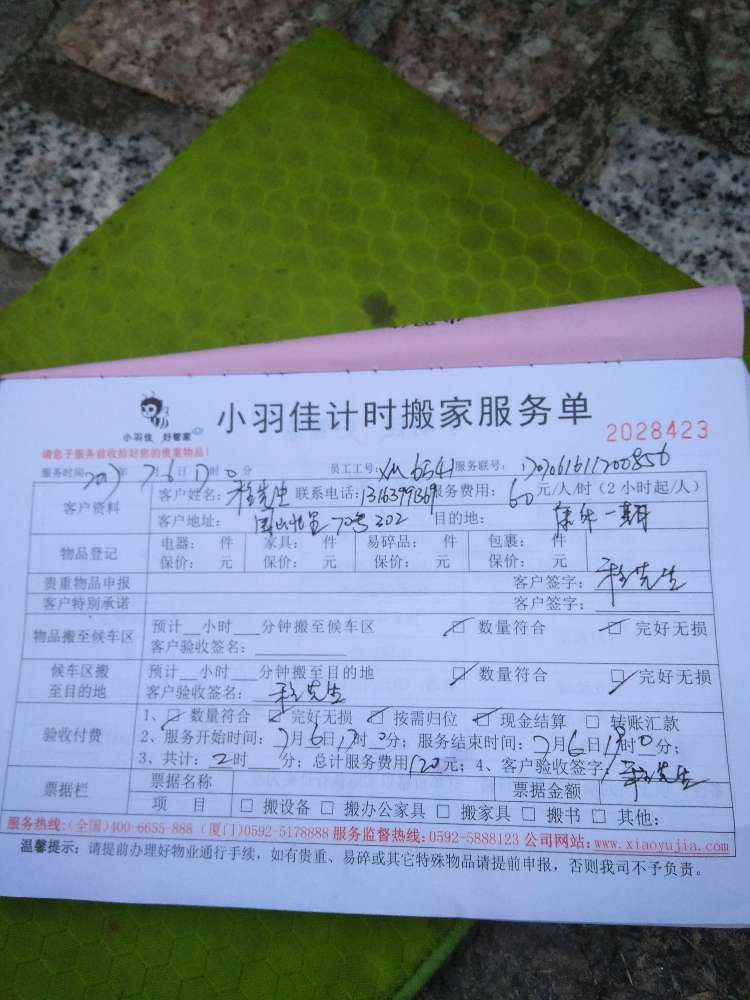 小羽佳 好管家
小羽佳计时搬家服务单
2028423
请您于服务前收拾好您的贵重物品!
服务时间:2017年7月6日17时0分 员工工号:XM6541 服务联号:
客户资料 客户姓名:程先生 联系电话:1316399369 服务费用:60元/人/时(2小时起/人)
客户地址: 70号202 目的地:
物品登记 电器: 件 家具: 件 易碎品: 件 包裹: 件
保价: 元 保价: 元 保价: 元 保价: 元
贵重物品申报 客户签字:程先生
客户特别承诺 客户签字:
物品搬至候车区 预计__小时___分钟搬至候车区 ☑ 数量符合 ☑ 完好无损
客户验收签名:
候车区搬至目的地 预计__小时___分钟搬至目的地 ☑ 数量符合 ☑ 完好无损
客户验收签名:程先生
验收付费 1、☑ 数量符合 ☑ 完好无损 ☑ 按需归位 ☑ 现金结算 □ 转账汇款
2、服务开始时间:7月6日17时0分;服务结束时间:7月6日19时0分;
3、共计:2时 分;总计服务费用120元;4、客户验收签字:程先生
票据栏 票据名称 票据金额
项 目 □ 搬设备 □ 搬办公家具 □ 搬家具 □ 搬书 □ 其他:
服务热线:(全国)400-6655-888 (厦门)0592-5178888 服务监督热线:0592-5888123 公司网站:www.xiaoyujia.com
温馨提示:请提前办理好物业通行手续,如有贵重、易碎或其它特殊物品请提前申报,否则我司不予负责。